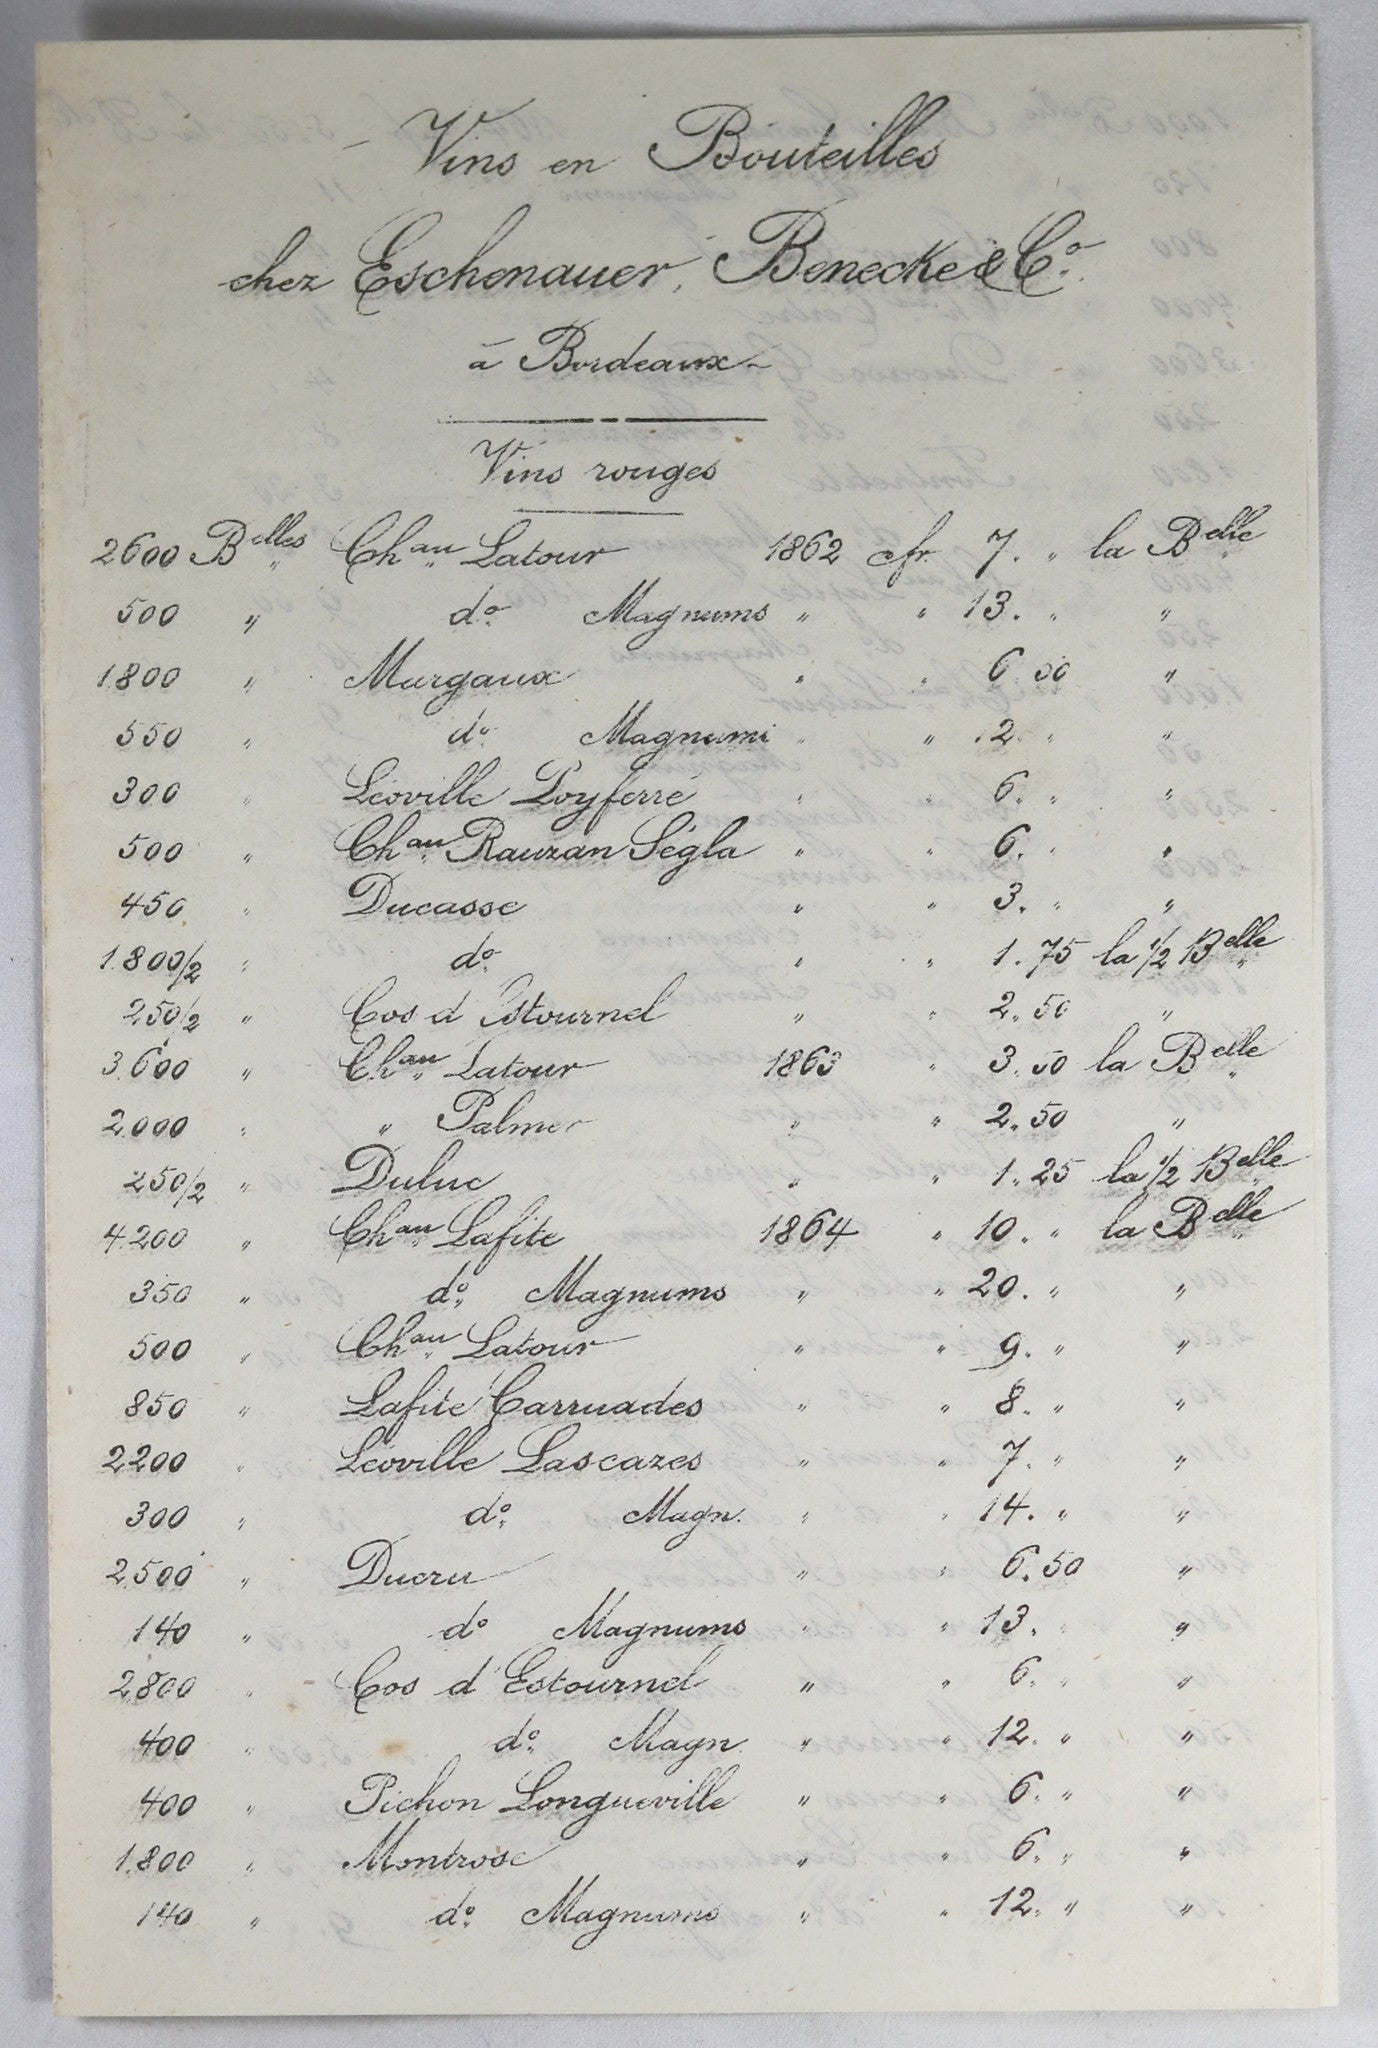 Vins en Bouteilles
chez Eschenauer, Benecke & Cº
à Bordeaux
Vins rouges
2600 Belles Chau Latour 1862 cfr. 7. " la Belle
500 " dº Magnums " " 13. " "
1800 " Margaux " " 6.50 "
550 " dº Magnums " " 12. " "
300 " Léoville Poyferré " " 6. " "
500 " Chau Rauzan Ségla " " 6. " "
450 " Ducasse " " 3. " "
1.800/2 " dº " " 1.75 la 1/2 Belle
250/2 " Cos d'Estournel " " 2.50 "
3.600 " Chau Latour 1863 " 3.50 la Belle
2.000 " " Palmer " " 2.50 "
250/2 " Duluc " " 1.25 la 1/2 Belle
4.200 " Chau Lafite 1864 " 10. " la Belle
350 " dº Magnums " " 20. " "
500 " Chau Latour " " 9. " "
850 " Lafite Carruades " " 8. " "
2200 " Léoville Lascazes " " 7. " "
300 " dº Magn. " " 14. " "
2.500 " Ducru " " 6.50 "
140 " dº Magnums " " 13. " "
2.800 " Cos d'Estournel " " 6. " "
400 " dº Magn. " " 12. " "
400 " Pichon Longueville " " 6. " "
1.800 " Montrose " " 6. " "
140 " dº Magnums " " 12. " "